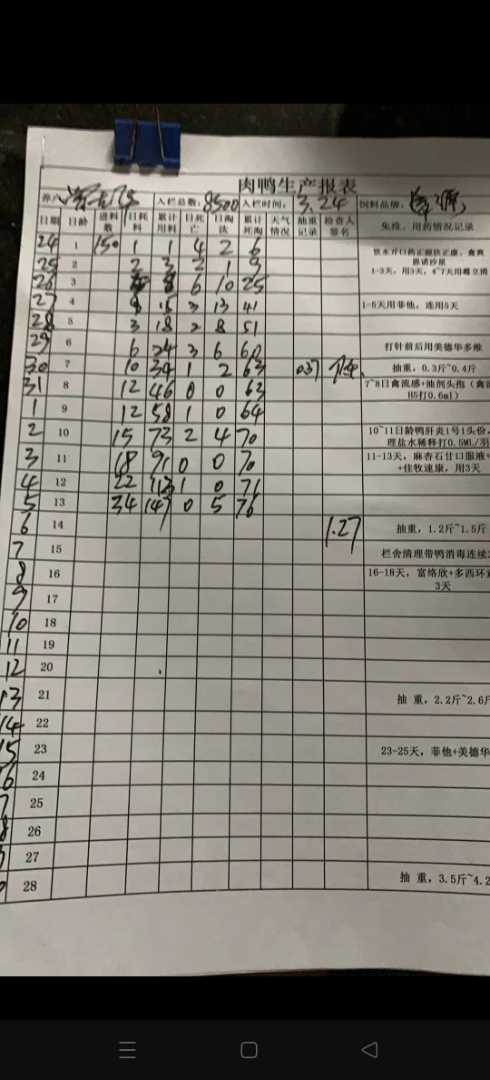 肉鸭生产报表
养户 入栏总数: 8500 入栏时间: 3.24 饲料品牌:
日期 日龄 进料数 日耗料 累计用料 日死亡 日淘汰 累计死淘 天气情况 抽重记录 检查人签名 免疫、用药情况记录
24 1 150 1 1 4 2 6
25 2 2 3 2 1 9
1-3天，用3天，4~7天用霉立消
26 3 8 6 10 25
27 4 3 13 41 1-5天用菲他，连用5天
28 5 3 18 2 8 51
29 6 6 24 3 6 60 打针前后用美德华多维
30 7 10 34 1 2 63 037 抽重，0.3斤~0.4斤
31 8 12 46 0 0 63 7~8日禽流感+油剂头孢（禽
H5打0.6ml）
1 9 12 58 1 0 64
2 10 15 73 2 4 70 10~11日龄鸭肝炎1号1头份，
理盐水稀释打0.5ML/羽
3 11 18 91 0 0 70 11-13天，麻杏石甘口服液+
+佳牧速康，用3天
4 12 22 113 1 0 71
5 13 34 147 0 5 76
6 14 1.27 抽重，1.2斤~1.5斤
7 15 栏舍清理带鸭消毒连续
8 16 16-18天，富络欣+多西环
3天
9 17
10 18
11 19
12 20
13 21 抽 重，2.2斤~2.6斤
14 22
15 23 23-25天，菲他+美德华
6 24
7 25
8 26
27
28 抽 重，3.5斤~4.2